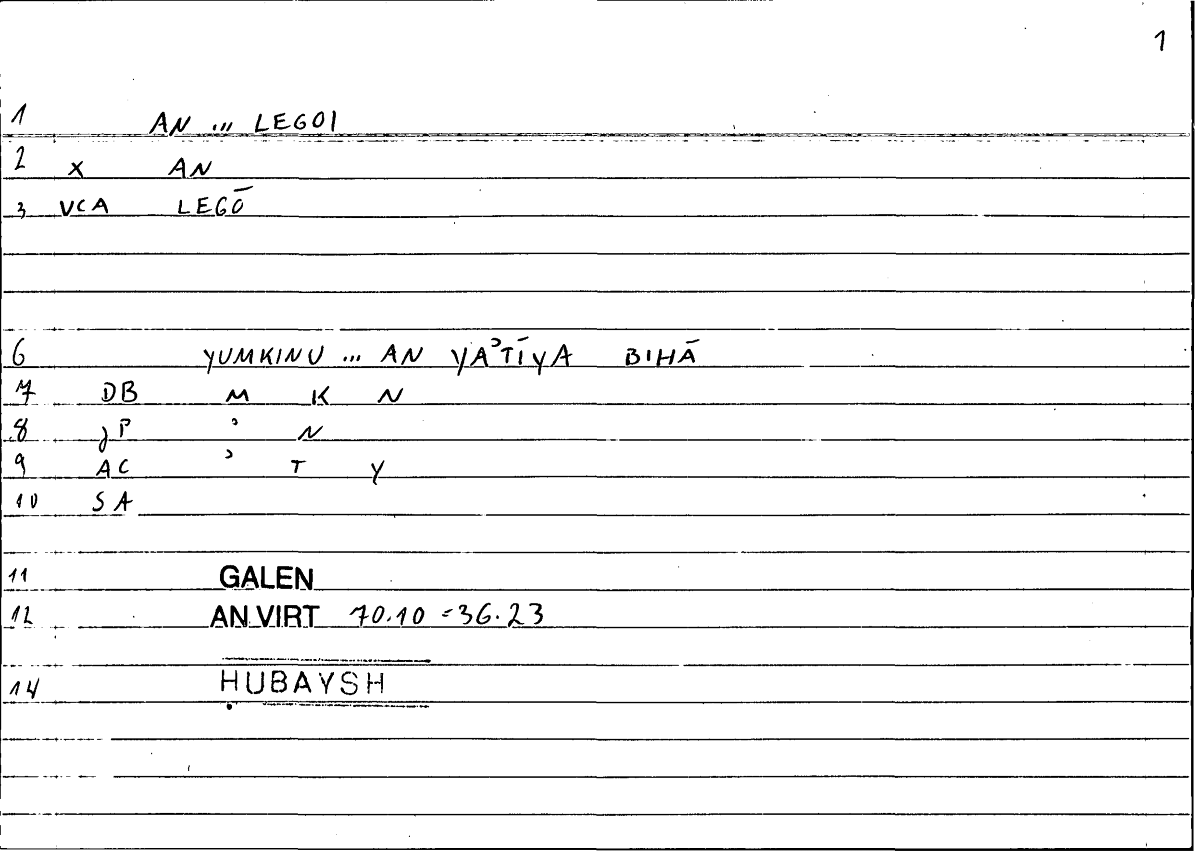 1
1 AN ... LEGOI
2 X AN
3 VCA LEGŌ
6 YUMKINU ... AN YAʾTIYA BIHĀ
7 DB M K N
8 JP ʾ N
9 AC ʾ T Y
10 SA
11 GALEN
12 AN VIRT 70.10 = 36.23
14 ḤUBAYSH